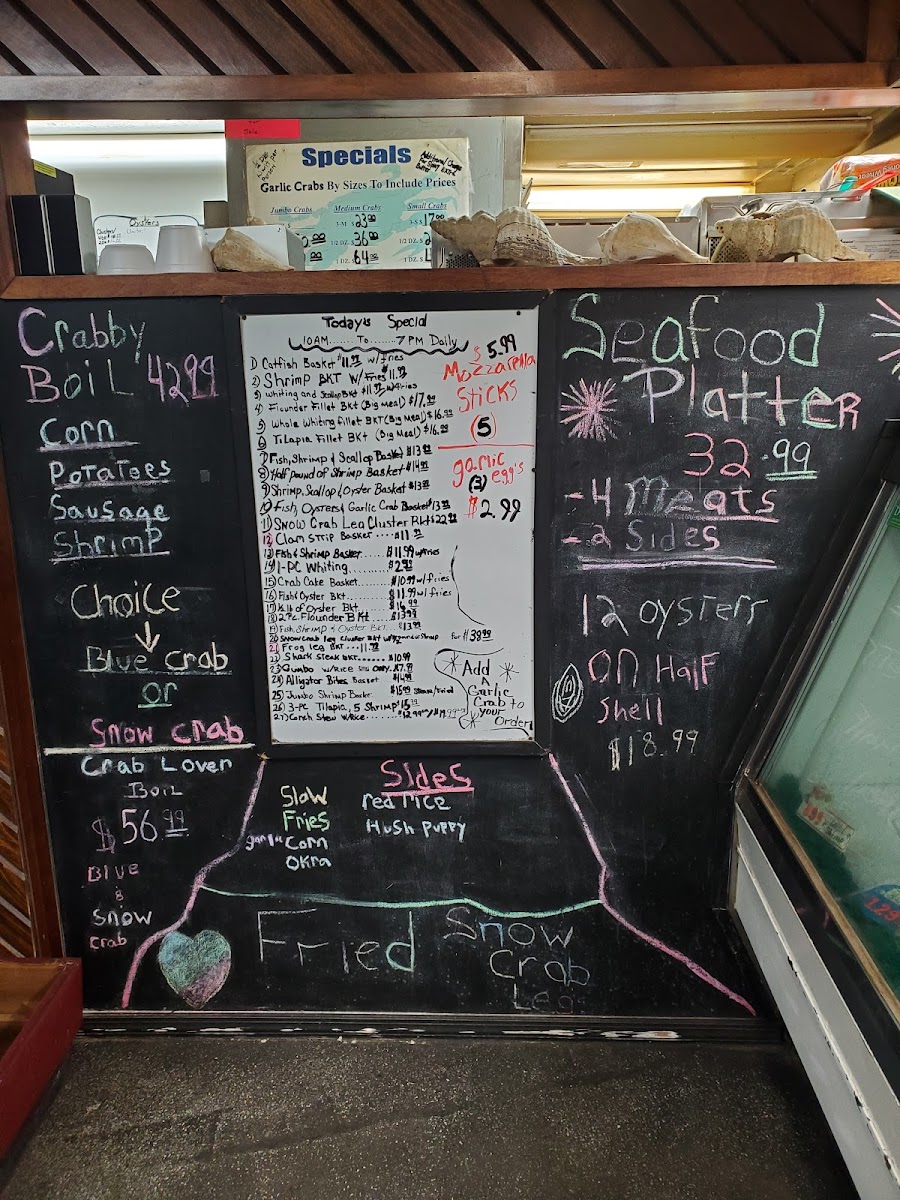 Specials
Garlic Crabs By Sizes To Include Prices
Jumbo Crabs
Medium Crabs
Small Crabs
3-M $ 23.00
1/2 DZ. $ 36.00
1 DZ. $ 64.00
3-S $ 17
1/2 DZ. $
1 DZ. $
Oysters
Crabby
Boil 42.99
Corn
Potatoes
Sausage
Shrimp
Choice
Blue crab
or
Snow crab
Crab Lover
Boil
$56.99
Blue
&
Snow
crab
Today's Special
10AM...... To......7 PM Daily
1) Catfish Basket $11.99 w/fries
2) Shrimp BKT w/Fries $11.99
3) Whiting and Scallop BKt $11.99 w/fries
4) Flounder Fillet BKt (Big Meal) $17.99
5) Whole Whiting fillet BKT (Big Meal) $16.99
6) Tilapia Fillet BKt (Big Meal) $16.99
7) Fish, Shrimp & Scallop Basket $13.99
8) Half pound of Shrimp Basket $14.99
9) Shrimp, Scallop & Oyster Basket $13.99
10) Fish, Oysters & Garlic Crab Basket $13.99
11) Snow Crab Leg Cluster Bkt $22.99
12) Clam Strip Basket .... $11.99
13) Fish & Shrimp Basket.... $11.99 w/fries
14) 1-PC Whiting.......... $2.99
15) Crab Cake Basket....... $10.99 w/fries
16) Fish & Oyster Bkt...... $11.99 w/fries
17) ½ lb of Oyster Bkt $16.99
18) 2 Pc. Flounder BKt $13.99
19) Fish, Shrimp & Oyster BKt. $13.99
20) Snow crab leg cluster BKt w/ Shrimp for $38.99
21) Frog leg BKT ...11.99
22) Shark Steak BKT....... $10.99
23) Gumbo w/Rice Only $7.99
24) Alligator Bites Basket $14.99
25) Jumbo Shrimp Basket $15.99 Steam/Fried
26) 3-PC Tilapia, 5 Shrimp $15.99
27) Conch Stew w/Rice....... $12.99
$5.99
Mozzarella
Sticks
(5)
garlic
egg's
(3)
$2.99
Add
A
Garlic
Crab to
your
Order
Seafood
Platter
32.99
-4 Meats
-2 Sides
12 oysters
On Half
Shell
$18.99
Sides
Slaw
Fries
garlic Corn
Okra
red rice
Hush puppy
Fried Snow
Crab
Leg